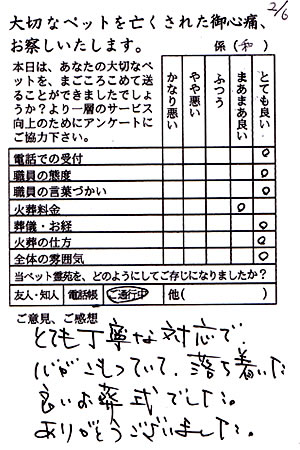 2/6
大切なペットを亡くされた御心痛、
お察しいたします。 係(和)
本日は、あなたの大切なペットを、まごころこめて送ることができましたでしょうか？より一層のサービス向上のためにアンケートにご協力下さい。
かなり悪い やや悪い ふつう まあまあ良い とても良い
電話での受付 ○
職員の態度 ○
職員の言葉づかい ○
火葬料金 ○
葬儀・お経 ○
火葬の仕方 ○
全体の雰囲気 ○
当ペット霊苑を、どのようにしてご存じになりましたか？
友人・知人 電話帳 ご通行中 他( )
ご意見、ご感想
とても丁寧な対応で、
心がこもっていて、落ち着いた
良いお葬式でした。
ありがとうございました。